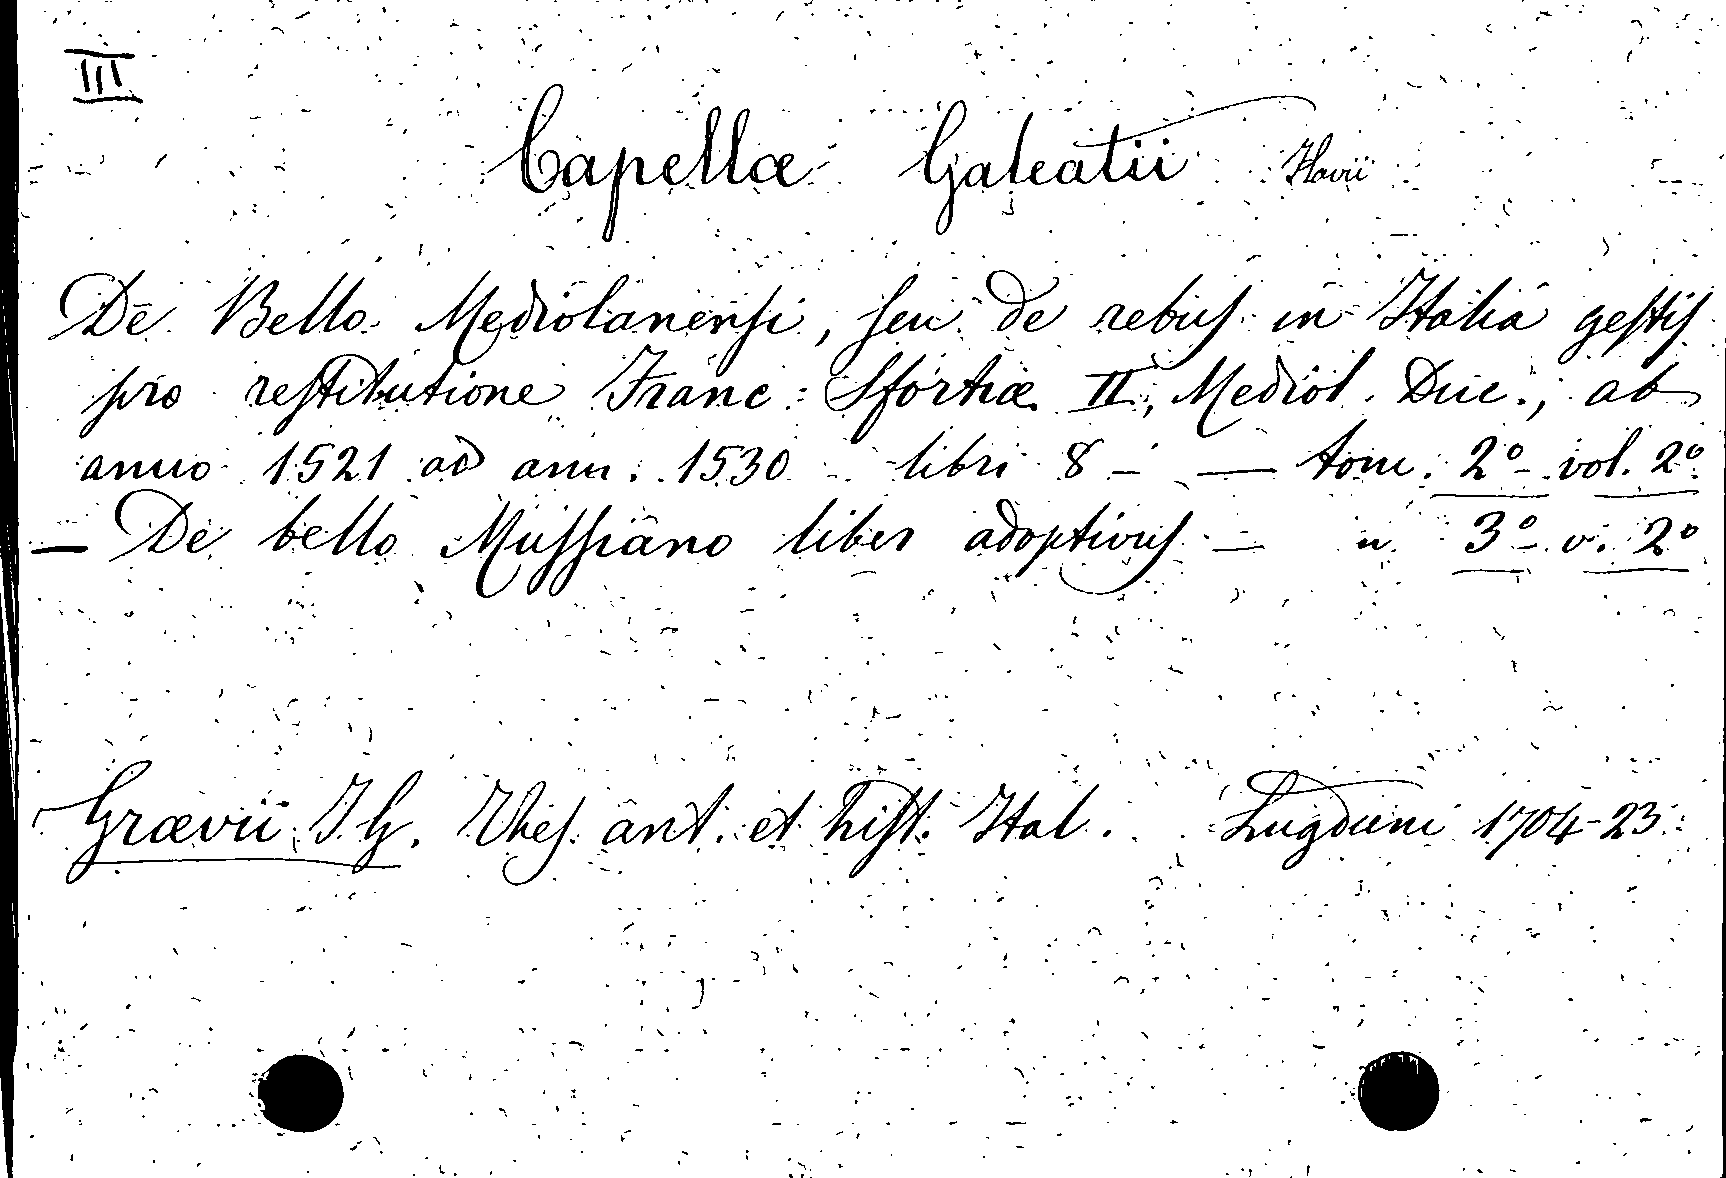 III
Capellæ Galeatii Flavii
De Bello Mediolanensi, seu de rebus in Italia gestis
pro restitutione Franc: Sfortiæ II, Mediol. Duc., ab
anno 1521 ad ann: 1530 libri 8 - — tom. 2º vol. 2º
— De bello Mussiano liber adoptivus — " 3º v. 2º
Grævii J. G. Thes. ant. et hist. Ital. Lugduni 1704-23